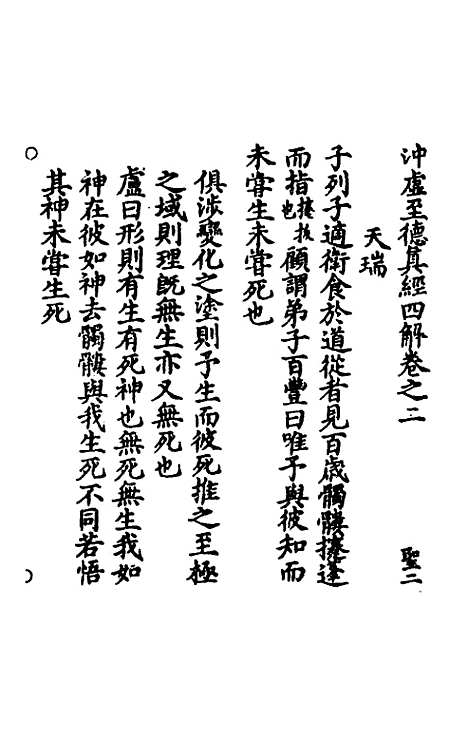 沖虛至德真經四解卷之二 聖二
天瑞
子列子適衛食於道從者見百歲髑髏攓蓬
而指攓拔也顧謂弟子百豐曰唯予與彼知而
未嘗生未嘗死也
俱涉變化之塗則予生而彼死推之至極
之域則理既無生亦又無死也
盧曰形則有生有死神也無死無生我如
神在彼如神去髑髏與我生死不同若悟
其神未嘗生死